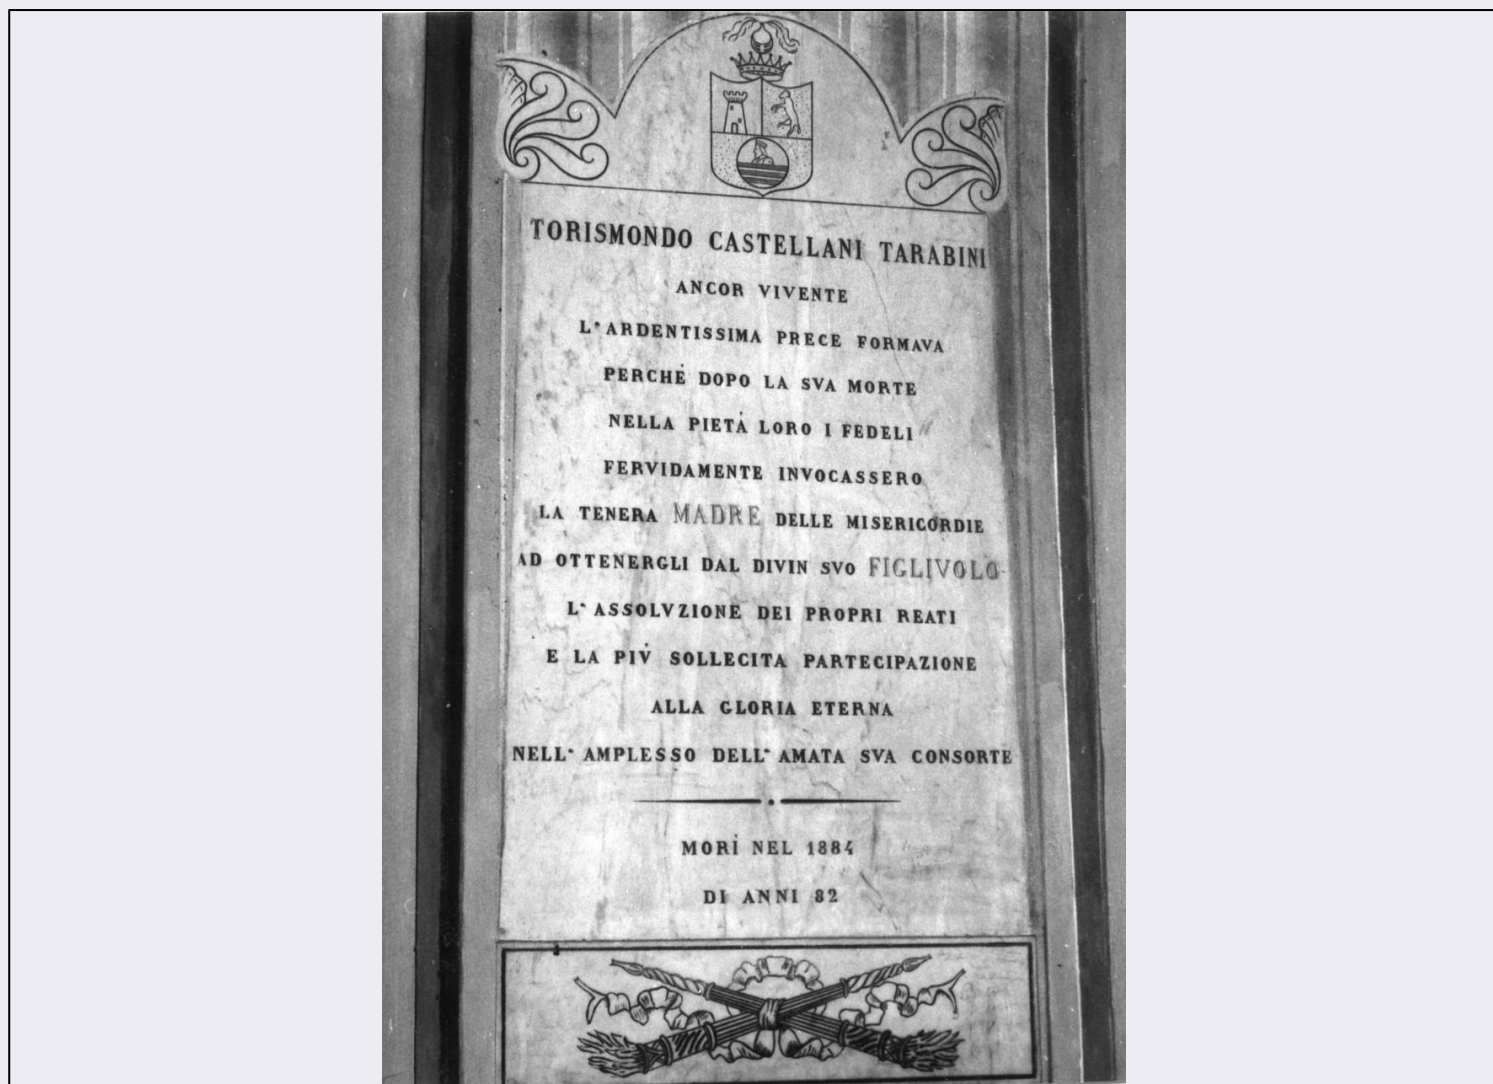 TORISMONDO CASTELLANI TARABINI
ANCOR VIVENTE
L'ARDENTISSIMA PRECE FORMAVA
PERCHĖ DOPO LA SVA MORTE
NELLA PIETȦ LORO I FEDELI
FERVIDAMENTE INVOCASSERO
LA TENERA MADRE DELLE MISERICORDIE
AD OTTENERGLI DAL DIVIN SVO FIGLIVOLO
L'ASSOLVZIONE DEI PROPRI REATI
E LA PIV̇ SOLLECITA PARTECIPAZIONE
ALLA GLORIA ETERNA
NELL' AMPLESSO DELL' AMATA SVA CONSORTE
MORİ NEL 1884
DI ANNI 82